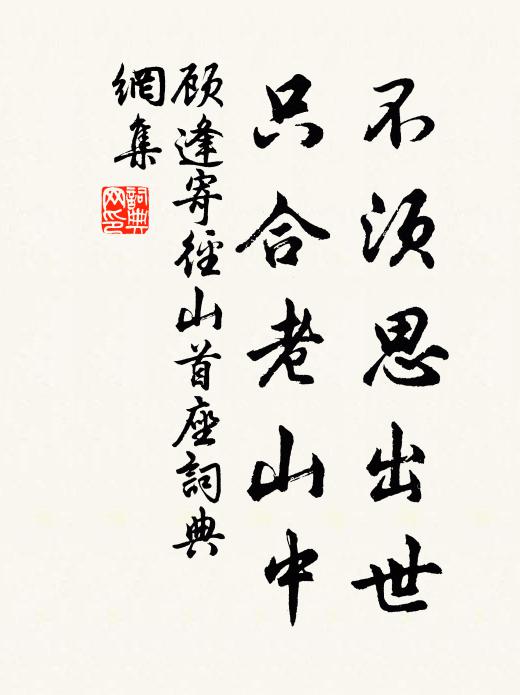 不須思出世
只合老山中
顾逢寄徑山首座詞典
網集
詞典
网印